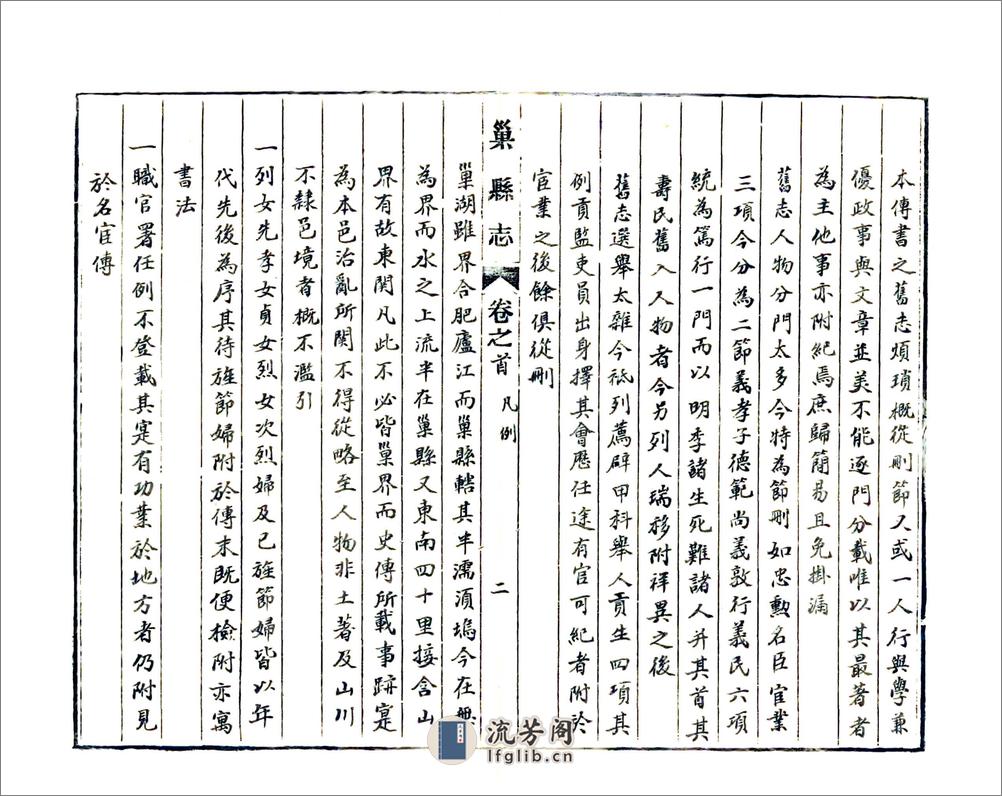 本傳書之舊志煩瑣概從刪節又或一人行與學兼
優政事與文章並美不能逐門分載唯以其最著者
為主他事亦附紀焉庶歸簡易且免掛漏
舊志人物分門太多今特為節刪如忠勳名臣宦業
三項今分為二節義孝子德範尚義敦行義民六項
統為篤行一門而以明季諸生死難諸人并其首其
壽民舊入人物者今另列人瑞移附祥異之後
舊志選舉太雜今祗列薦辟甲科舉人貢生四項其
例貢監吏員出身擇其會歷任途有官可紀者附於
宦業之後餘俱從刪
巢縣志
卷之首
凡例
二
巢湖雖界合肥廬江而巢縣轄其半濡須塢今在無
為界而水之上流半在巢縣又東南四十里接含山
界有故東関凡此不必皆巢界而史傳所載事跡寔
為本邑治亂所関不得從略至人物非土著及山川
不隸邑境者概不濫引
一列女先孝女貞女烈女次烈婦及已旌節婦皆以年
代先後為序其待旌節婦附於傳末既便檢附亦寓
書法
一職官署任例不登載其寔有功業於地方者仍附見
於名宦傳
流芳阁
lfglib.cn